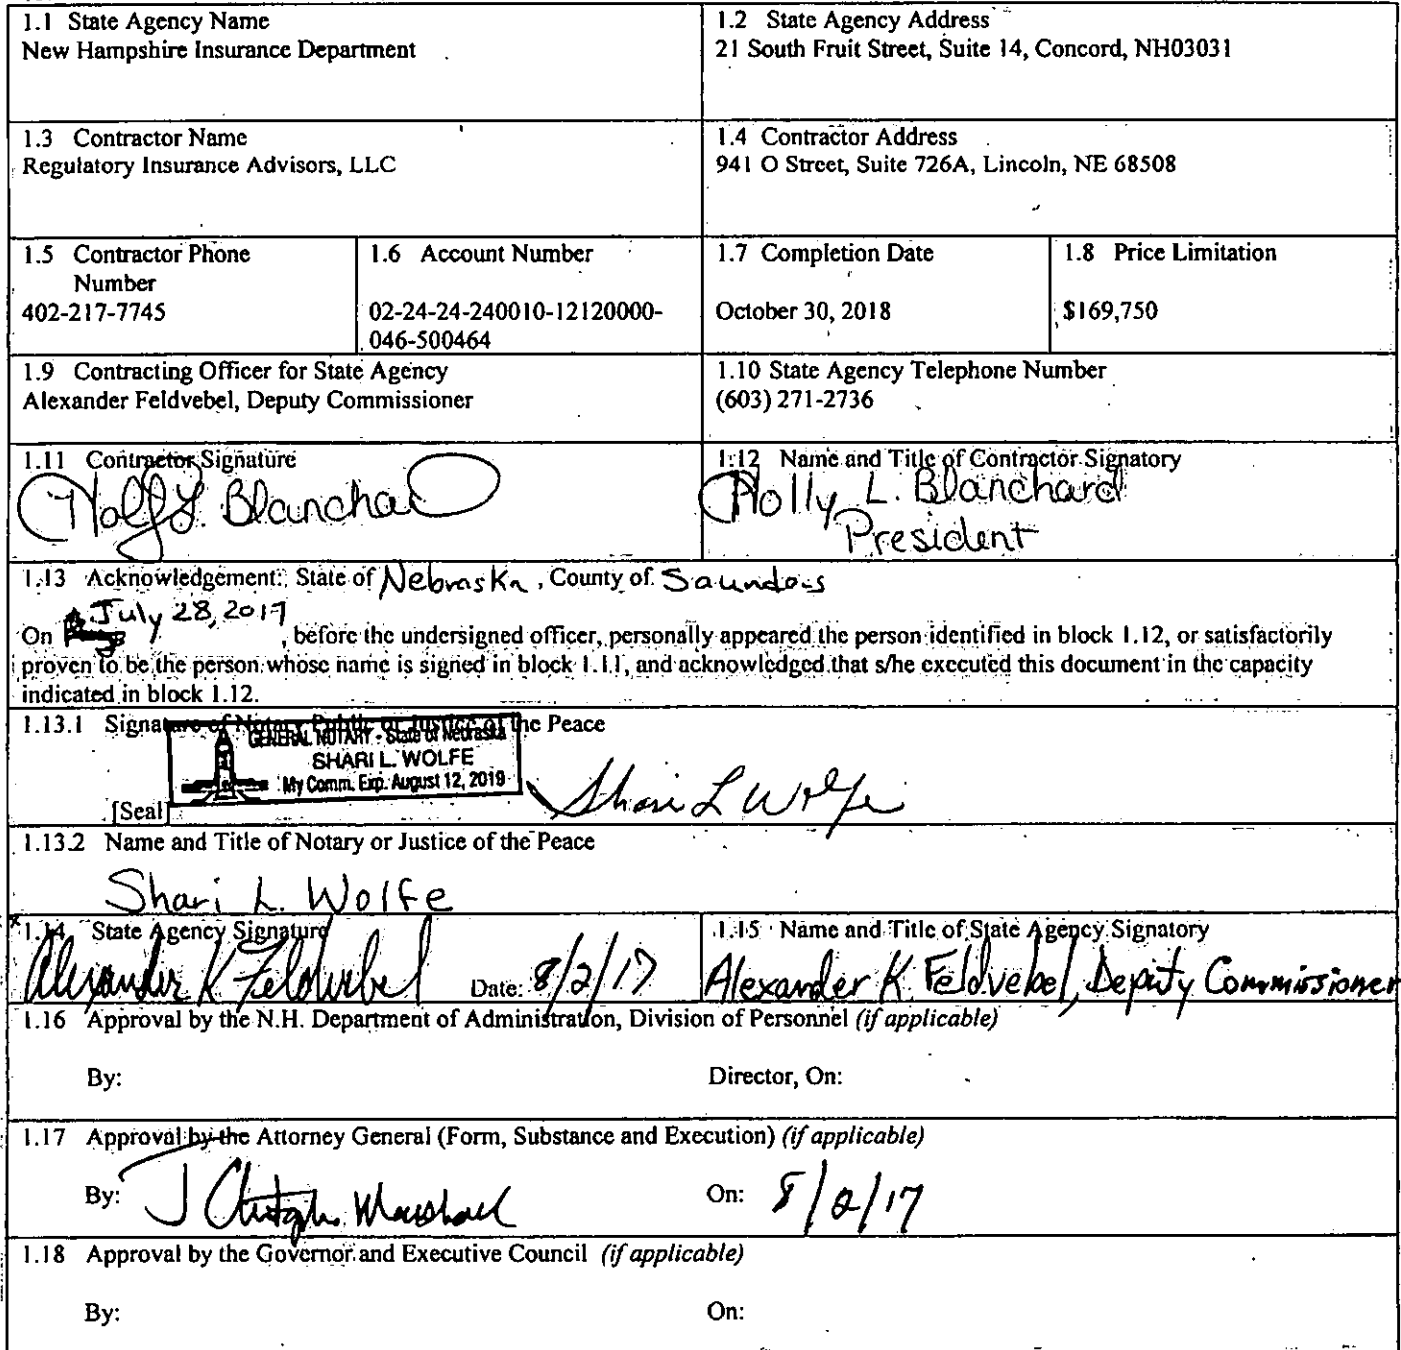 1.1 State Agency Name
New Hampshire Insurance Department
1.2 State Agency Address
21 South Fruit Street, Suite 14, Concord, NH03031
1.3 Contractor Name
Regulatory Insurance Advisors, LLC
1.4 Contractor Address
941 O Street, Suite 726A, Lincoln, NE 68508
1.5 Contractor Phone
Number
402-217-7745
1.6 Account Number
02-24-24-240010-12120000-
046-500464
1.7 Completion Date
October 30, 2018
1.8 Price Limitation
$169,750
1.9 Contracting Officer for State Agency
Alexander Feldvebel, Deputy Commissioner
1.10 State Agency Telephone Number
(603) 271-2736
1.11 Contractor Signature
Holly L. Blanchard
1.12 Name and Title of Contractor Signatory
Holly L. Blanchard
President
1.13 Acknowledgement: State of Nebraska, County of Saunders
July 28, 2017
On , before the undersigned officer, personally appeared the person identified in block 1.12, or satisfactorily
proven to be the person whose name is signed in block 1.11, and acknowledged that s/he executed this document in the capacity
indicated in block 1.12.
1.13.1 Signature of Notary Public or Justice of the Peace
GENERAL NOTARY - State of Nebraska
SHARI L. WOLFE
My Comm. Exp. August 12, 2019
Shari L Wolfe
[Seal]
1.13.2 Name and Title of Notary or Justice of the Peace
Shari L. Wolfe
1.14 State Agency Signature
Alexander K Feldvebel Date: 8/2/17
1.15 Name and Title of State Agency Signatory
Alexander K. Feldvebel, Deputy Commissioner
1.16 Approval by the N.H. Department of Administration, Division of Personnel (if applicable)
By: Director, On:
1.17 Approval by the Attorney General (Form, Substance and Execution) (if applicable)
By: J Christopher Marshall On: 8/2/17
1.18 Approval by the Governor and Executive Council (if applicable)
By: On: